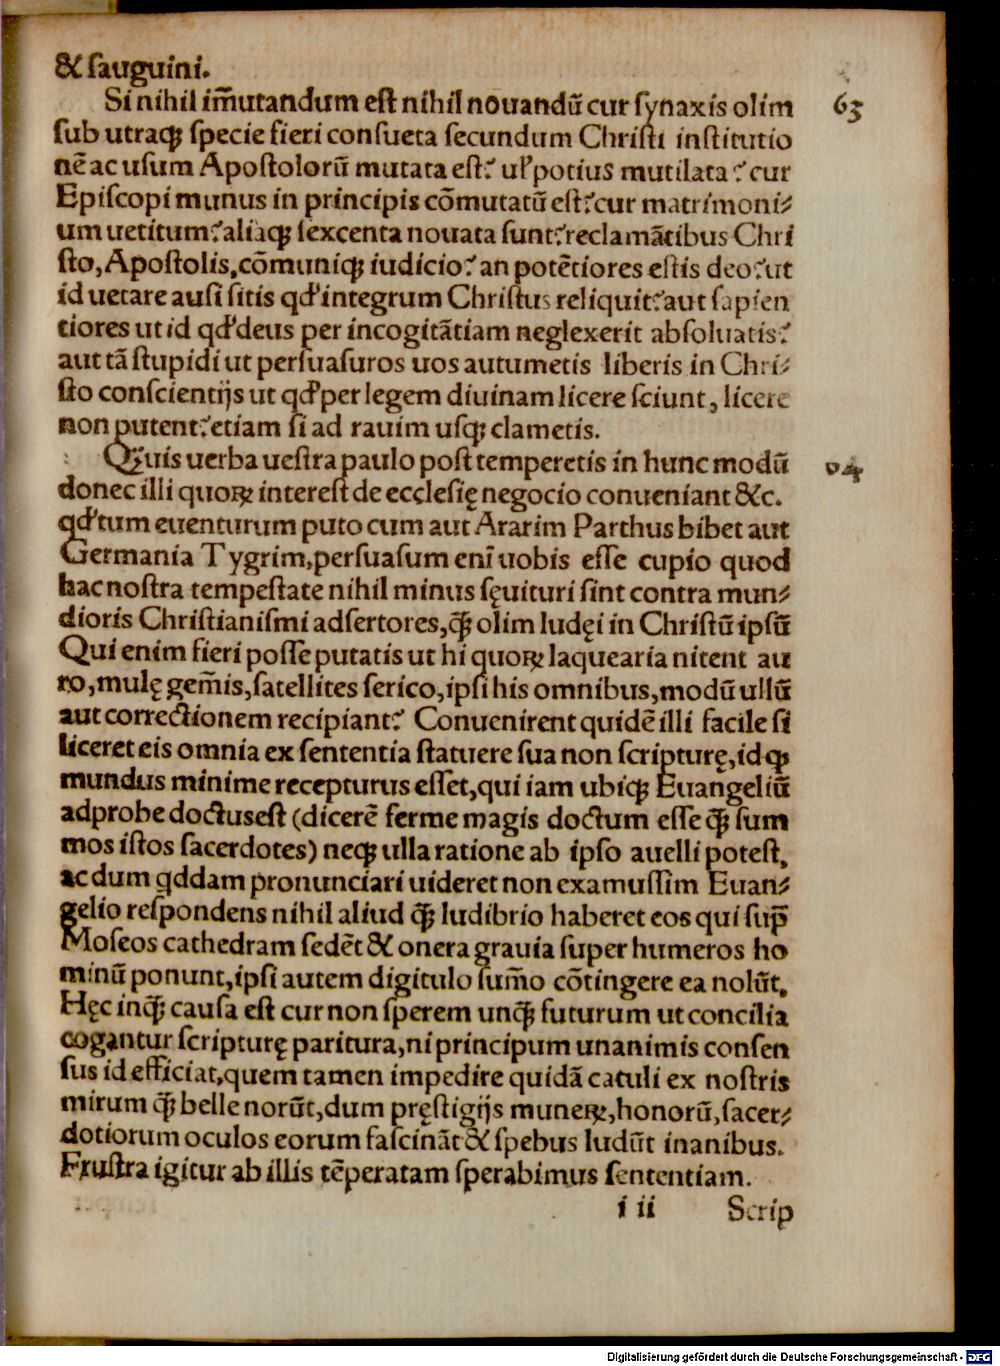 & sauguini.
Si nihil im̃utandum est nihil nouandũ cur synaxis olim
sub utraqꝫ specie fieri consueta secundum Christi institutio
nẽ ac usum Apostolorũ mutata est? ul' potius mutilata? cur
Episcopi munus in principis cõmutatũ est? cur matrimoni⸗
um uetitum? aliaqꝫ sexcenta nouata sunt? reclamãtibus Chri
sto, Apostolis, cõmuniqꝫ iudicio? an potẽtiores estis deo? ut
id uetare ausi sitis qd' integrum Christus reliquit? aut sapien
tiores ut id qd' deus per incogitãtiam neglexerit absoluatis?
aut tã stupidi ut persuasuros uos autumetis liberis in Chri⸗
sto conscientijs ut qd' per legem diuinam licere sciunt, licere
non putent? etiam si ad rauim usqꝫ clametis.
63
Q̃uis uerba uestra paulo post temperetis in hunc modũ
donec illi quoꝝ interest de ecclesię negocio conueniant &c.
qd' tum euenturum puto cum aut Ararim Parthus bibet aut
Germania Tygrim, persuasum enĩ uobis esse cupio quod
hac nostra tempestate nihil minus sęuituri sint contra mun⸗
dioris Christianismi adsertores, q̃ꝫ olim Iudęi in Christũ ipsũ
Qui enim fieri posse putatis ut hi quoꝝ laquearia nitent au
ro, mulę gem̃is, satellites serico, ipsi his omnibus, modũ ullũ
aut correctionem recipiant? Conuenirent quidẽ illi facile si
liceret eis omnia ex sententia statuere sua non scripturę, idqꝫ
mundus minime recepturus esset, qui iam ubiqꝫ Euangeliũ
adprobe doctus est (dicerẽ ferme magis doctum esse q̃ꝫ sum
mos istos sacerdotes) neqꝫ ulla ratione ab ipso auelli potest,
ac dum qddam pronunciari uideret non examussim Euan⸗
gelio respondens nihil aliud q̃ꝫ ludibrio haberet eos qui sup̃
Moseos cathedram sedẽt & onera grauia super humeros ho
minũ ponunt, ipsi autem digitulo sum̃o cõtingere ea nolũt.
Hęc inq̃ꝫ causa est cur non sperem unq̃ꝫ futurum ut concilia
cogantur scripturę paritura, ni principum unanimis consen
sus id efficiat, quem tamen impedire quidã catuli ex nostris
mirum q̃ꝫ belle norũt, dum pręstigijs muneꝝ, honorũ, sacer⸗
dotiorum oculos eorum fascinãt & spebus ludũt inanibus.
Frustra igitur ab illis tẽperatam sperabimus sententiam.
64
i ii Scrip
Digitalisierung gefördert durch die Deutsche Forschungsgemeinschaft - DFG